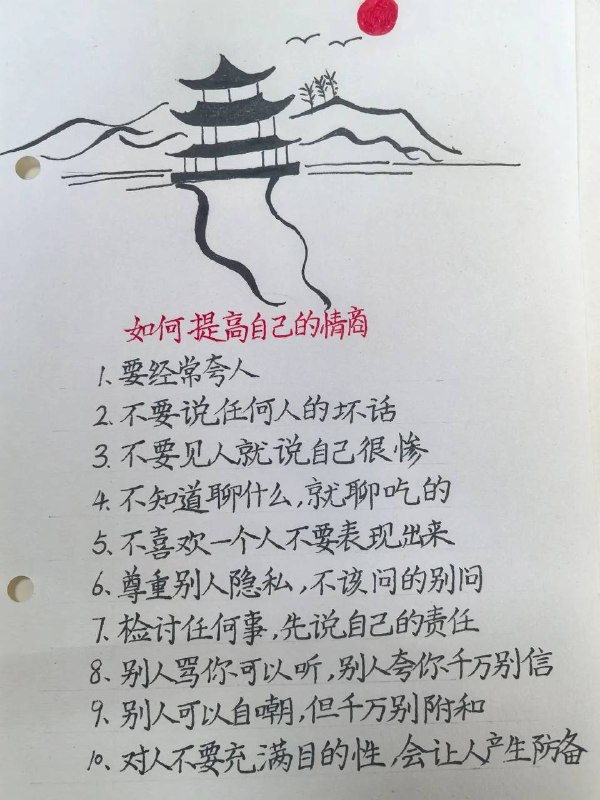 如何提高自己的情商
1.要经常夸人
2.不要说任何人的坏话
3.不要见人就说自己很惨
4.不知道聊什么,就聊吃的
5.不喜欢一个人不要表现出来
6.尊重别人隐私,不该问的别问
7.检讨任何事,先说自己的责任
8.别人骂你可以听,别人夸你千万别信
9.别人可以自嘲,但千万别附和
10.对人不要充满目的性,会让人产生防备